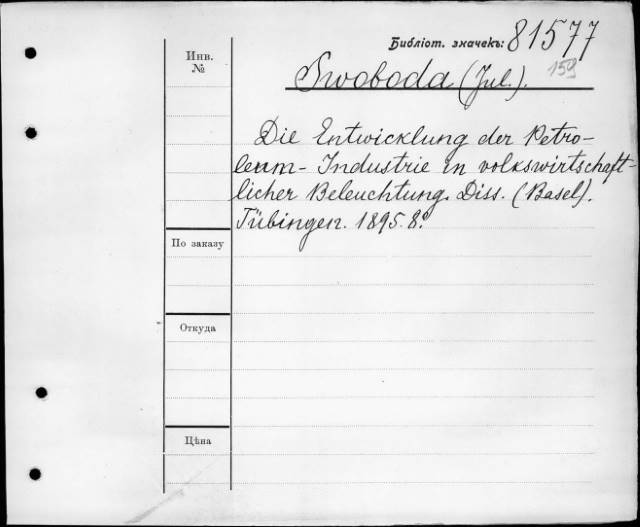 Библіот. значекъ: 81577
159
Инв.
№
Swoboda (Jul.).
Die Entwicklung der Petro-
leum-Industrie in volkswirtschaft-
licher Beleuchtung. Diss. (Basel).
Tübingen. 1895. 8º
По заказу
Откуда
Цѣна